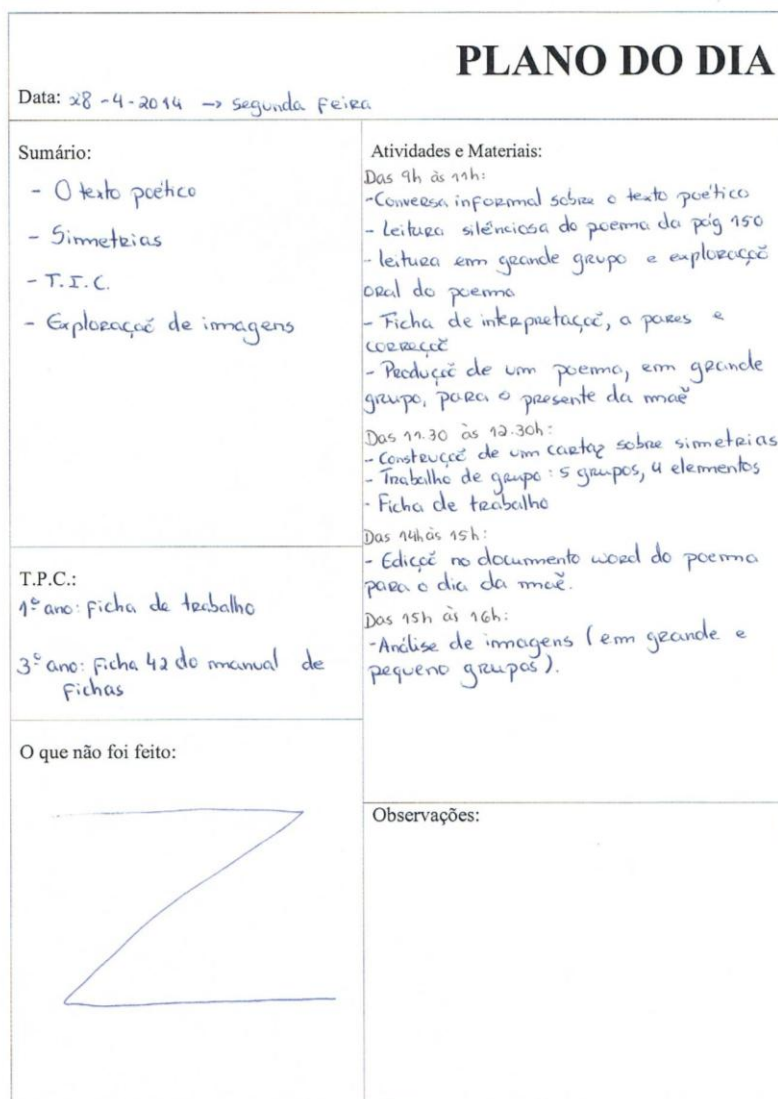 PLANO DO DIA
Data: 28-4-2014 → segunda feira
Sumário:
- O texto poético
- Simetrias
- T.I.C.
- Exploração de imagens
T.P.C.:
1º ano: ficha de trabalho
3º ano: ficha 42 do manual de
fichas
O que não foi feito:
Atividades e Materiais:
Das 9h às 11h:
- Conversa informal sobre o texto poético
- Leitura silênciosa do poema da pág 150
- leitura em grande grupo e exploração
oral do poema
- Ficha de interpretação, a pares e
correção
- Produção de um poema, em grande
grupo, para o presente da mãe
Das 11.30 às 12.30h:
- Construção de um cartaz sobre simetrias
- Trabalho de grupo: 5 grupos, 4 elementos
- Ficha de trabalho
Das 14h às 15h:
- Edição no documento word do poema
para o dia da mãe.
Das 15h às 16h:
- Análise de imagens (em grande e
pequeno grupos).
Observações: